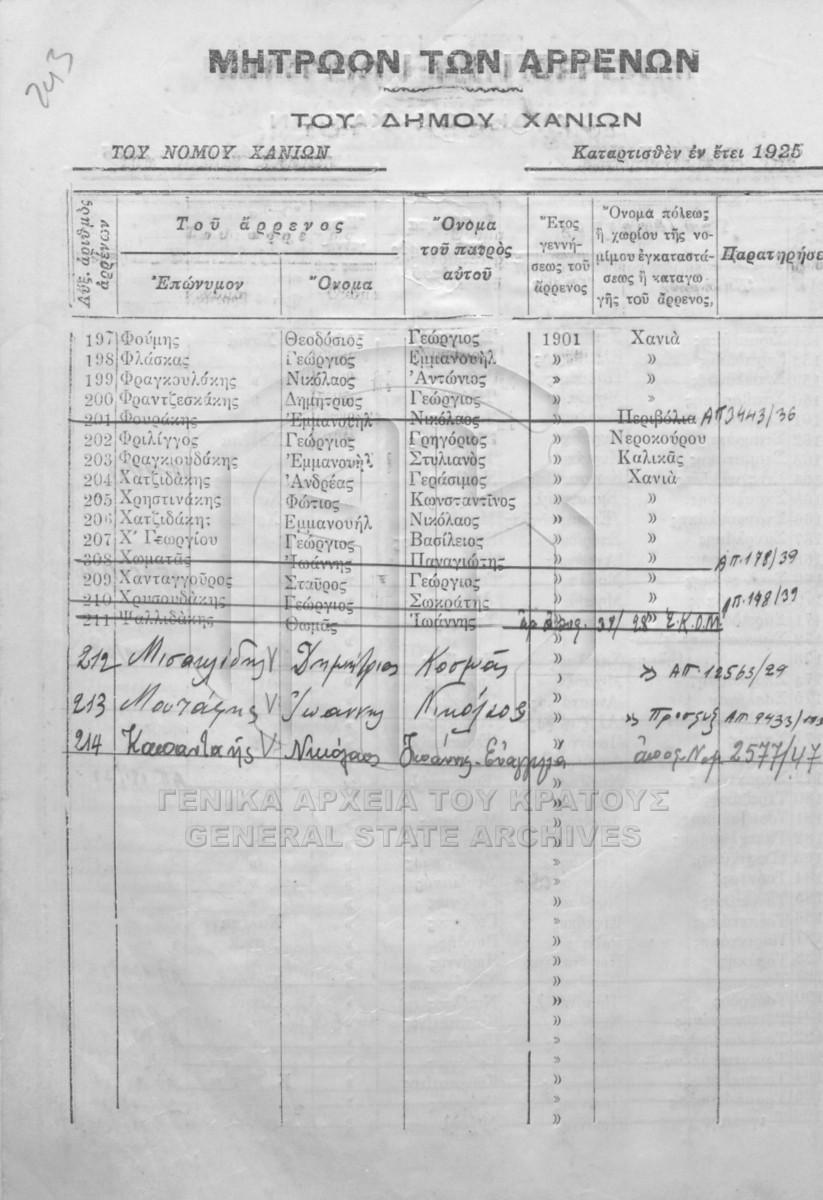 243
ΜΗΤΡΩΟΝ ΤΩΝ ΑΡΡΕΝΩΝ
ΤΟΥ ΔΗΜΟΥ ΧΑΝΙΩΝ
ΤΟΥ ΝΟΜΟΥ ΧΑΝΙΩΝ Καταρτισθὲν ἐν ἔτει 1925
Αὔξ. ἀριθμὸς ἀρρένων
Τοῦ ἄρρενος
Ἐπώνυμον Ὄνομα
Ὄνομα
τοῦ πατρὸς
αὐτοῦ
Ἔτος
γεννή-
σεως τοῦ
ἄρρενος
Ὄνομα πόλεως
ἢ χωρίου τῆς νο-
μίμου ἐγκαταστά-
σεως ἢ καταγω
γῆς τοῦ ἄρρενος,
Παρατηρήσε
197 Φούμης Θεοδόσιος Γεώργιος 1901 Χανιὰ
198 Φλάσκας Γεώργιος Ἐμμανουὴλ » »
199 Φραγκουλάκης Νικόλαος Ἀντώνιος » »
200 Φραντζεσκάκης Δημήτριος Γεώργιος » »
201 Φουράκης Ἐμμανουὴλ Νικόλαος » Περιβόλια ΑΠ 3443/36
202 Φριλίγγος Γεώργιος Γρηγόριος » Νεροκούρου
203 Φραγκιουδάκης Ἐμμανουὴλ Στυλιανὸς » Καλικᾶς
204 Χατζιδάκης Ἀνδρέας Γεράσιμος » Χανιὰ
205 Χρηστινάκης Φώτιος Κωνσταντῖνος » »
206 Χατζιδάκης Εμμανουήλ Νικόλαος » »
207 Χ΄ Γεωργίου Γεώργιος Βασίλειος » »
308 Χωματᾶς Ἰωάννης Παναγιώτης » » ΑΠ. 178/39
209 Χανταγγοῦρος Σταῦρος Γεώργιος » »
210 Χρυσουδάκης Γεώργιος Σωκράτης » » ΑΠ. 178/39
211 Ψαλλιδάκης Θωμᾶς Ἰωάννης » Σ.Κ.Ο.Μ
212 Μισαηλίδης V Δημήτριος Κοσμᾶς » » ΑΠ 12563/29
213 Μουτάφης V Ἰωαννης Νικόλαος » » Προσφυξ ΑΠ 9433/
214 Καπαντακῆς V Νικόλαος Ἰωάννης - Εὐαγγελία » ἀποφ. Νομ 2577/47
ΓΕΝΙΚΑ ΑΡΧΕΙΑ ΤΟΥ ΚΡΑΤΟΥΣ
GENERAL STATE ARCHIVES